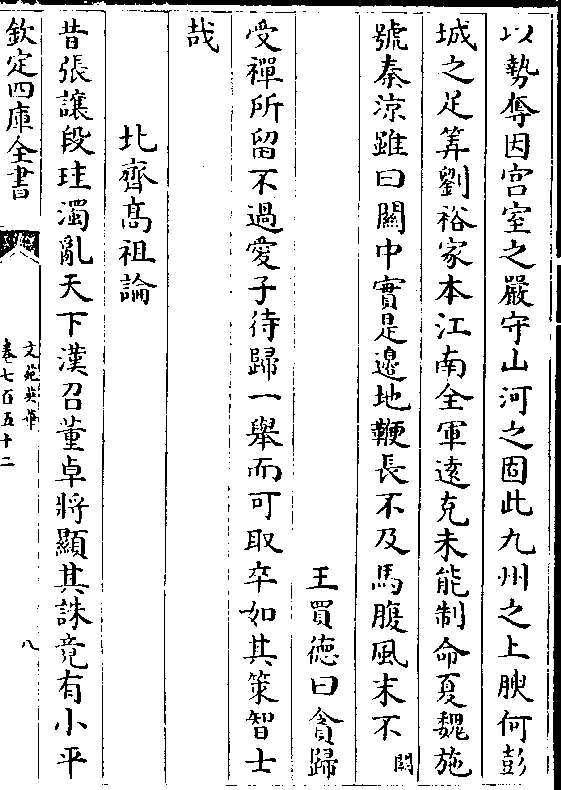 以勢奪因宫室之嚴守山河之固此九州之上腴何彭
城之足筭劉裕家本江南全軍遠克未能制命夏魏施
號秦涼雖曰關中實是邉地鞭長不及馬腹風末不闕
王買徳曰貪歸
受禪所留不過愛子待歸一舉而可取卒如其策智士
哉
北齊髙祖論
昔張讓段珪濁亂天下漢召董卓將顯其誅竟有小平
欽定四庫全書
文苑英華
卷七百五十二
八